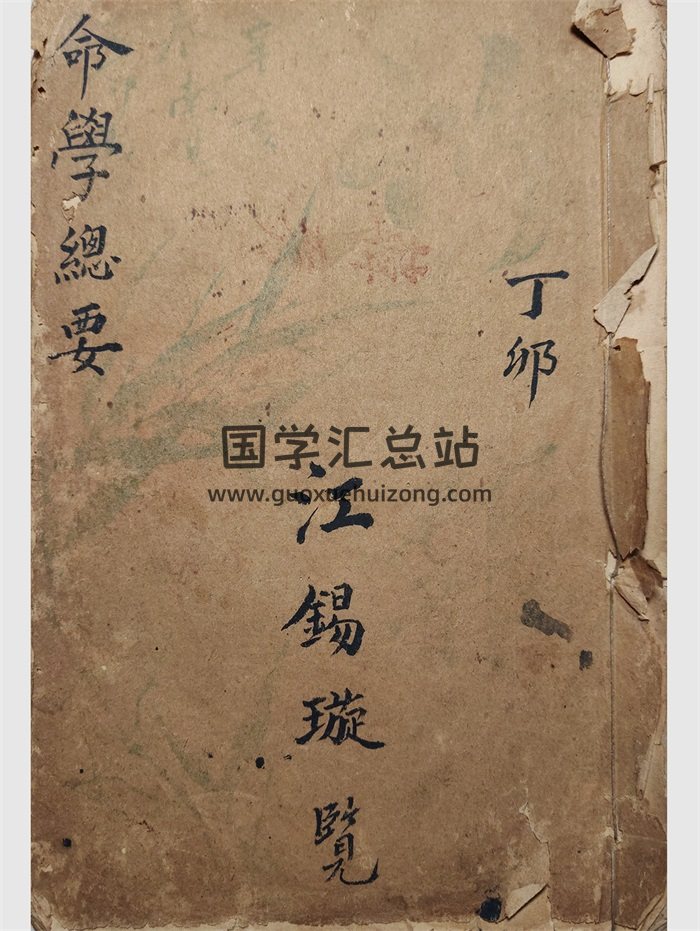 丁卯
江錫璇覽
命學總要
国学汇总站
www.guoxuehuizong.com